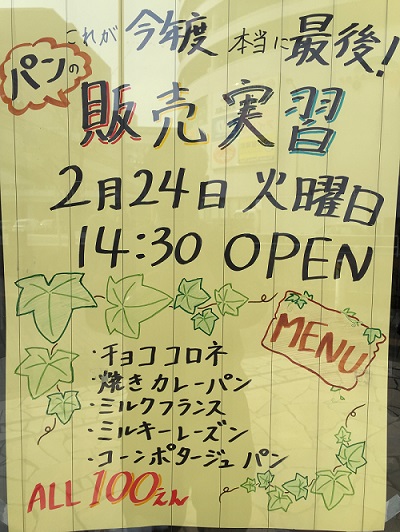 これが 今年度 本当に 最後!
パンの
販売実習
2月24日 火曜日
14:30 OPEN
MENU
・チョココロネ
・焼きカレーパン
・ミルクフランス
・ミルキーレーズン
・コーンポタージュパン
ALL 100えん